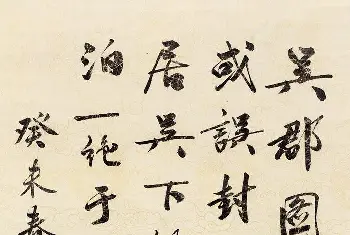 吳郡圖
或誤封
居吳下
泊一絶于
癸未春